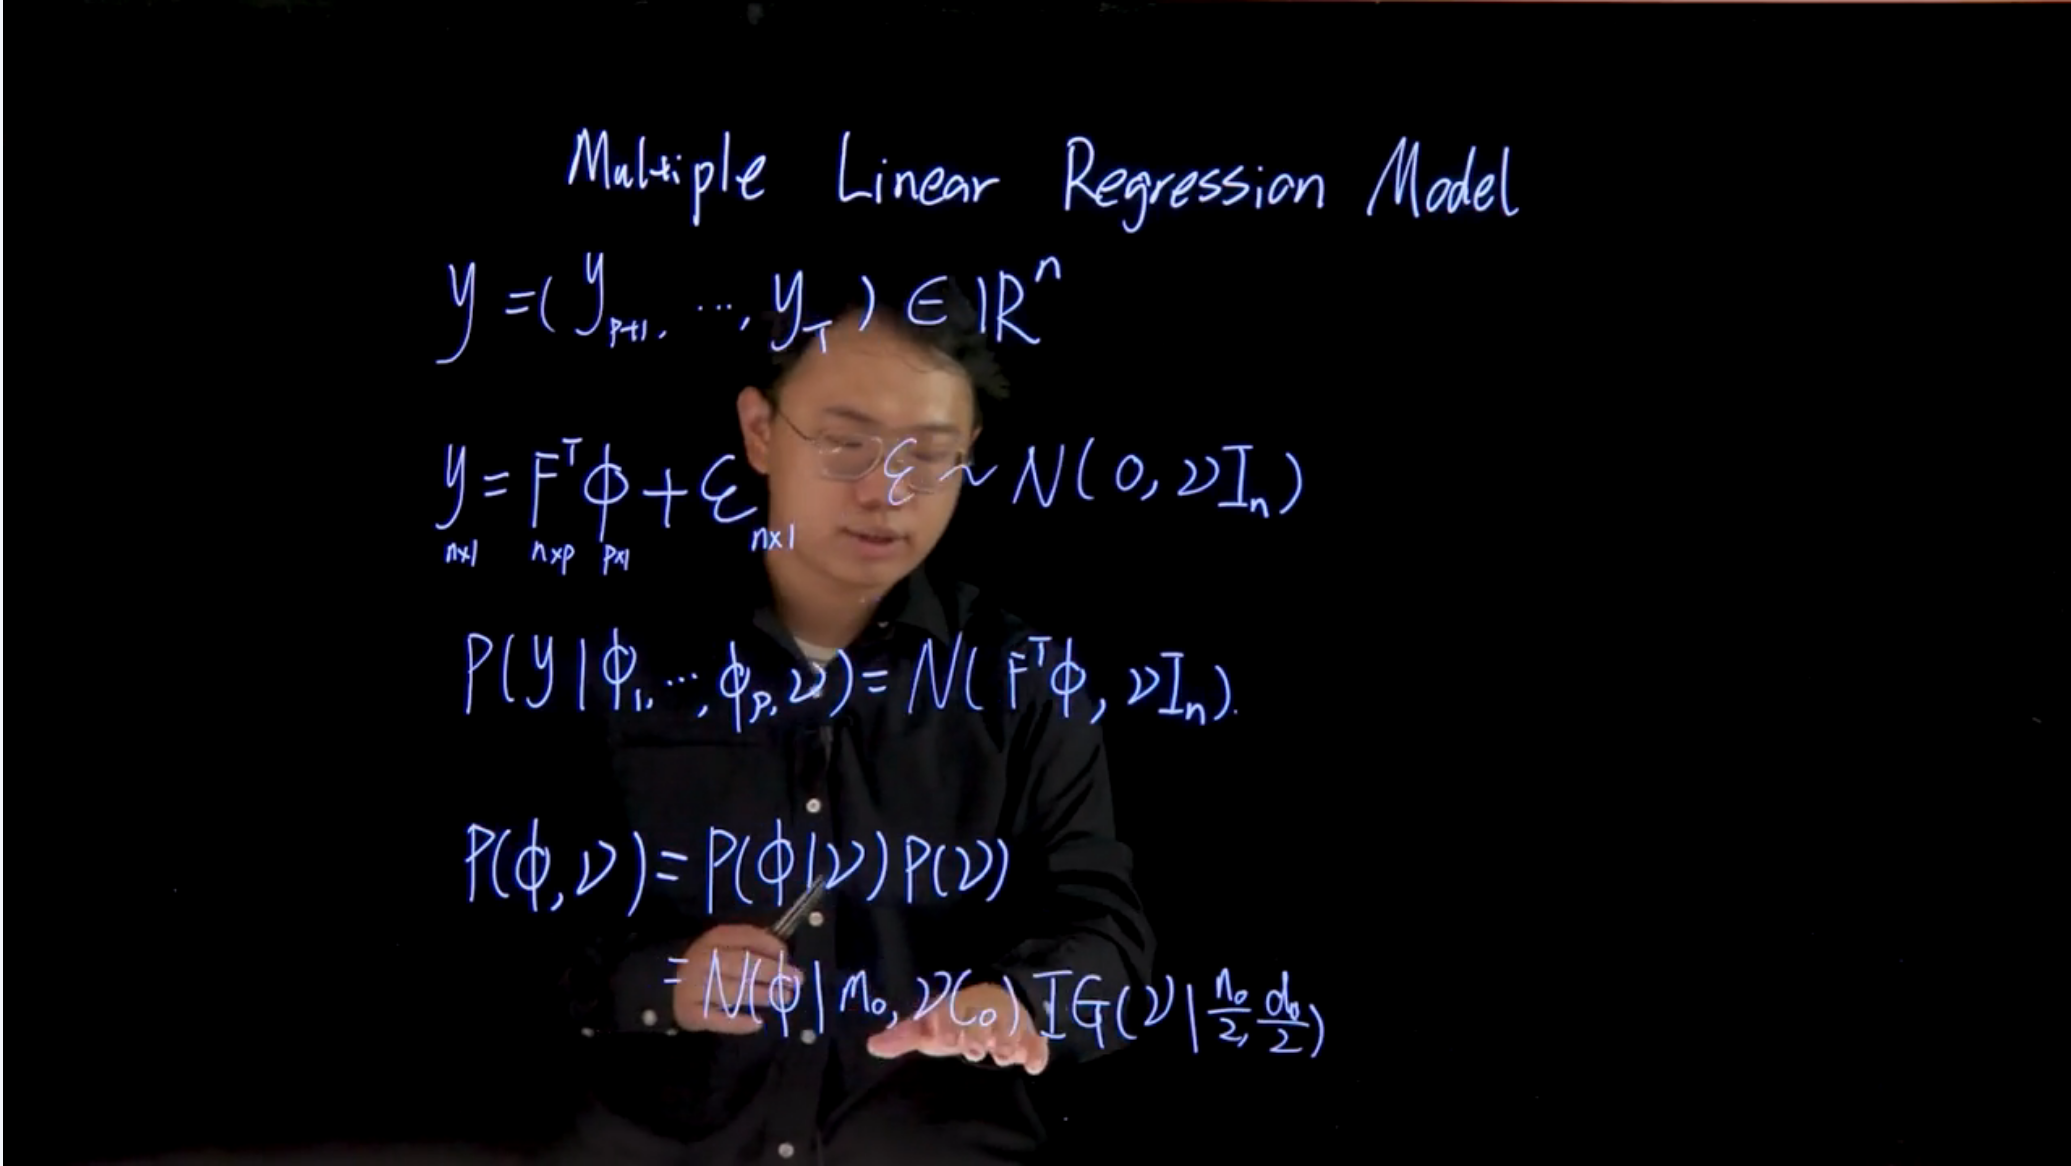 Multiple Linear Regression Model
y = (y_{p+1}, ..., y_T) ∈ ℝ^n
y = F^T ϕ + ε    ε ~ N(0, νI_n)
n×1 n×p p×1 n×1
P(y | ϕ_1, ..., ϕ_p, ν) = N(F^T ϕ, νI_n).
P(ϕ, ν) = P(ϕ|ν) P(ν)
= N(ϕ | m_0, νC_0) IG(ν | n_0/2, d_0/2)